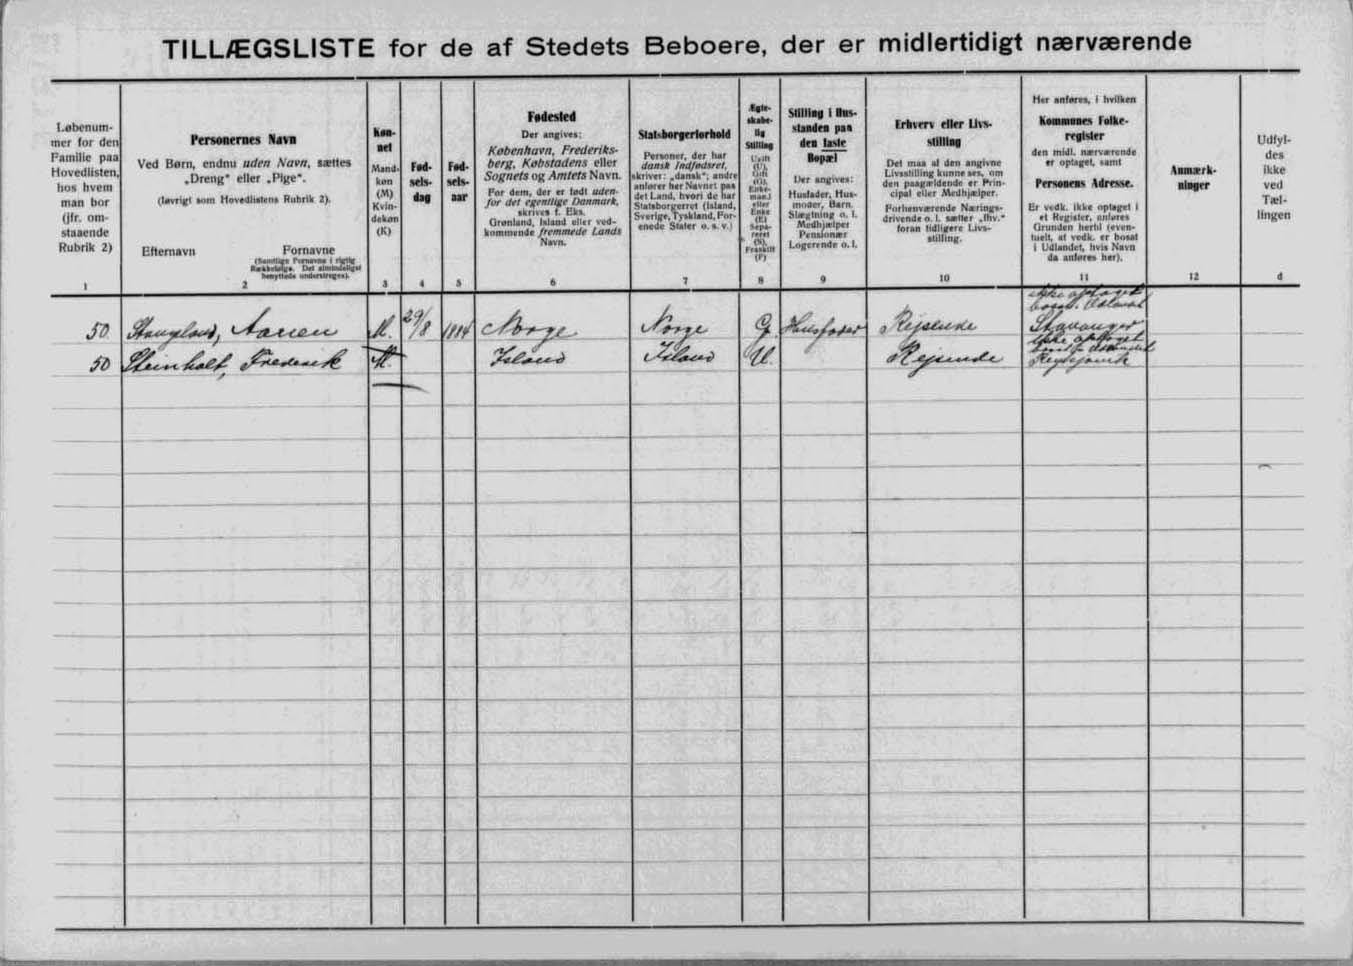 TILLÆGSLISTE for de af Stedets Beboere, der er midlertidigt nærværende
Løbenum-
mer for den
Familie paa
Hovedlisten,
hos hvem
man bor
(jfr. om-
staaende
Rubrik 2)
1
Personernes Navn
Ved Børn, endnu uden Navn, sættes
„Dreng“ eller „Pige“.
(Iøvrigt som Hovedlistens Rubrik 2).
Efternavn
Fornavne
(Samtlige Fornavne i rigtig
Rækkefølge. Det almindeligst
benyttede understreges).
2
Køn-
net
Mand-
køn
(M)
Kvin-
dekøn
(K)
3
Fød-
sels-
dag
4
Fød-
sels-
aar
5
Fødested
Der angives:
København, Frederiks-
berg, Købstadens eller
Sognets og Amtets Navn.
For dem, der er født uden-
for det egentlige Danmark,
skrives f. Eks.
Grønland, Island eller ved-
kommende fremmede Lands
Navn.
6
Statsborgerforhold
Personer, der har
dansk Indfødsret,
skriver: „dansk“; andre
anfører her Navnet paa
det Land, hvori de har
Statsborgerret (Island,
Sverige, Tyskland, For-
enede Stater o. s. v.)
7
Ægte-
skabe-
lig
Stilling
Ugift
(U),
Gift
(G),
Enke-
mand
eller
Enke
(E)
Sepa-
reret
(S),
Fraskilt
(F)
8
Stilling i Hus-
standen paa
den faste
Bopæl
Der angives:
Husfader, Hus-
moder, Barn,
Slægtning o. l.
Medhjælper
Pensionær
Logerende o. l.
9
Erhverv eller Livs-
stilling
Det maa af den angivne
Livsstilling kunne ses, om
den paagældende er Prin-
cipal eller Medhjælper.
Forhenværende Nærings-
drivende o. l. sætter „fhv.“
foran tidligere Livs-
stilling.
10
Her anføres, i hvilken
Kommunes Folke-
register
den midl. nærværende
er optaget, samt
Personens Adresse.
Er vedk. ikke optaget i
et Register, anføres
Grunden hertil (even-
tuelt, at vedk. er bosat
i Udlandet, hvis Navn
da anføres her).
11
Anmærk-
ninger
12
Udfyl-
des
ikke
ved
Tæl-
lingen
d
ikke optaget
bosat i Udlandet
50 Stangland, M. 29/8 1884 Norge Norge G. Husfader Rejsende Stavanger
ikke optaget
bosat i Udlandet
50 Steinholt, Frederik M. Island Island U. Rejsende Reykjavik